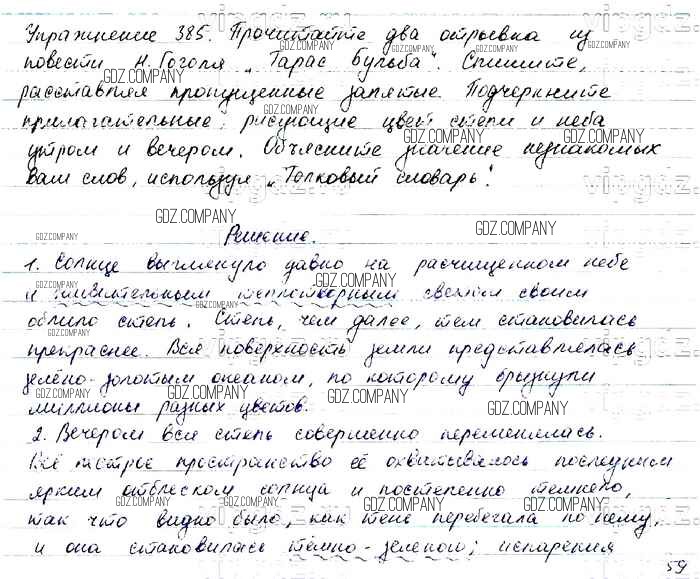 Упражнение 385. Прочитайте два отрывка из
повести Н. Гоголя „Тарас Бульба". Спишите,
расставляя пропущенные запятые. Подчеркните
прилагательные, рисующие цвет степи и неба
утром и вечером. Объясните значение незнакомых
Вам слов, используя „Толковый словарь".
Решение.
1. Солнце выглянуло давно на расчищенном небе
и живительным теплотворным светом своим
облило степь. Степь, чем далее, тем становилась
прекраснее. Вся поверхность земли представлялась
зелёно-золотым океаном, по которому брызнули
миллионы разных цветов.
2. Вечером вся степь совершенно переменялась.
Всё пёстрое пространство её охватывалось последним
ярким отблеском солнца и постепенно темнело,
так что видно было, как тень перебегала по нему,
и она становилась тёмно-зеленою; испарения
59
GDZ.COMPANY
vipgdz.com